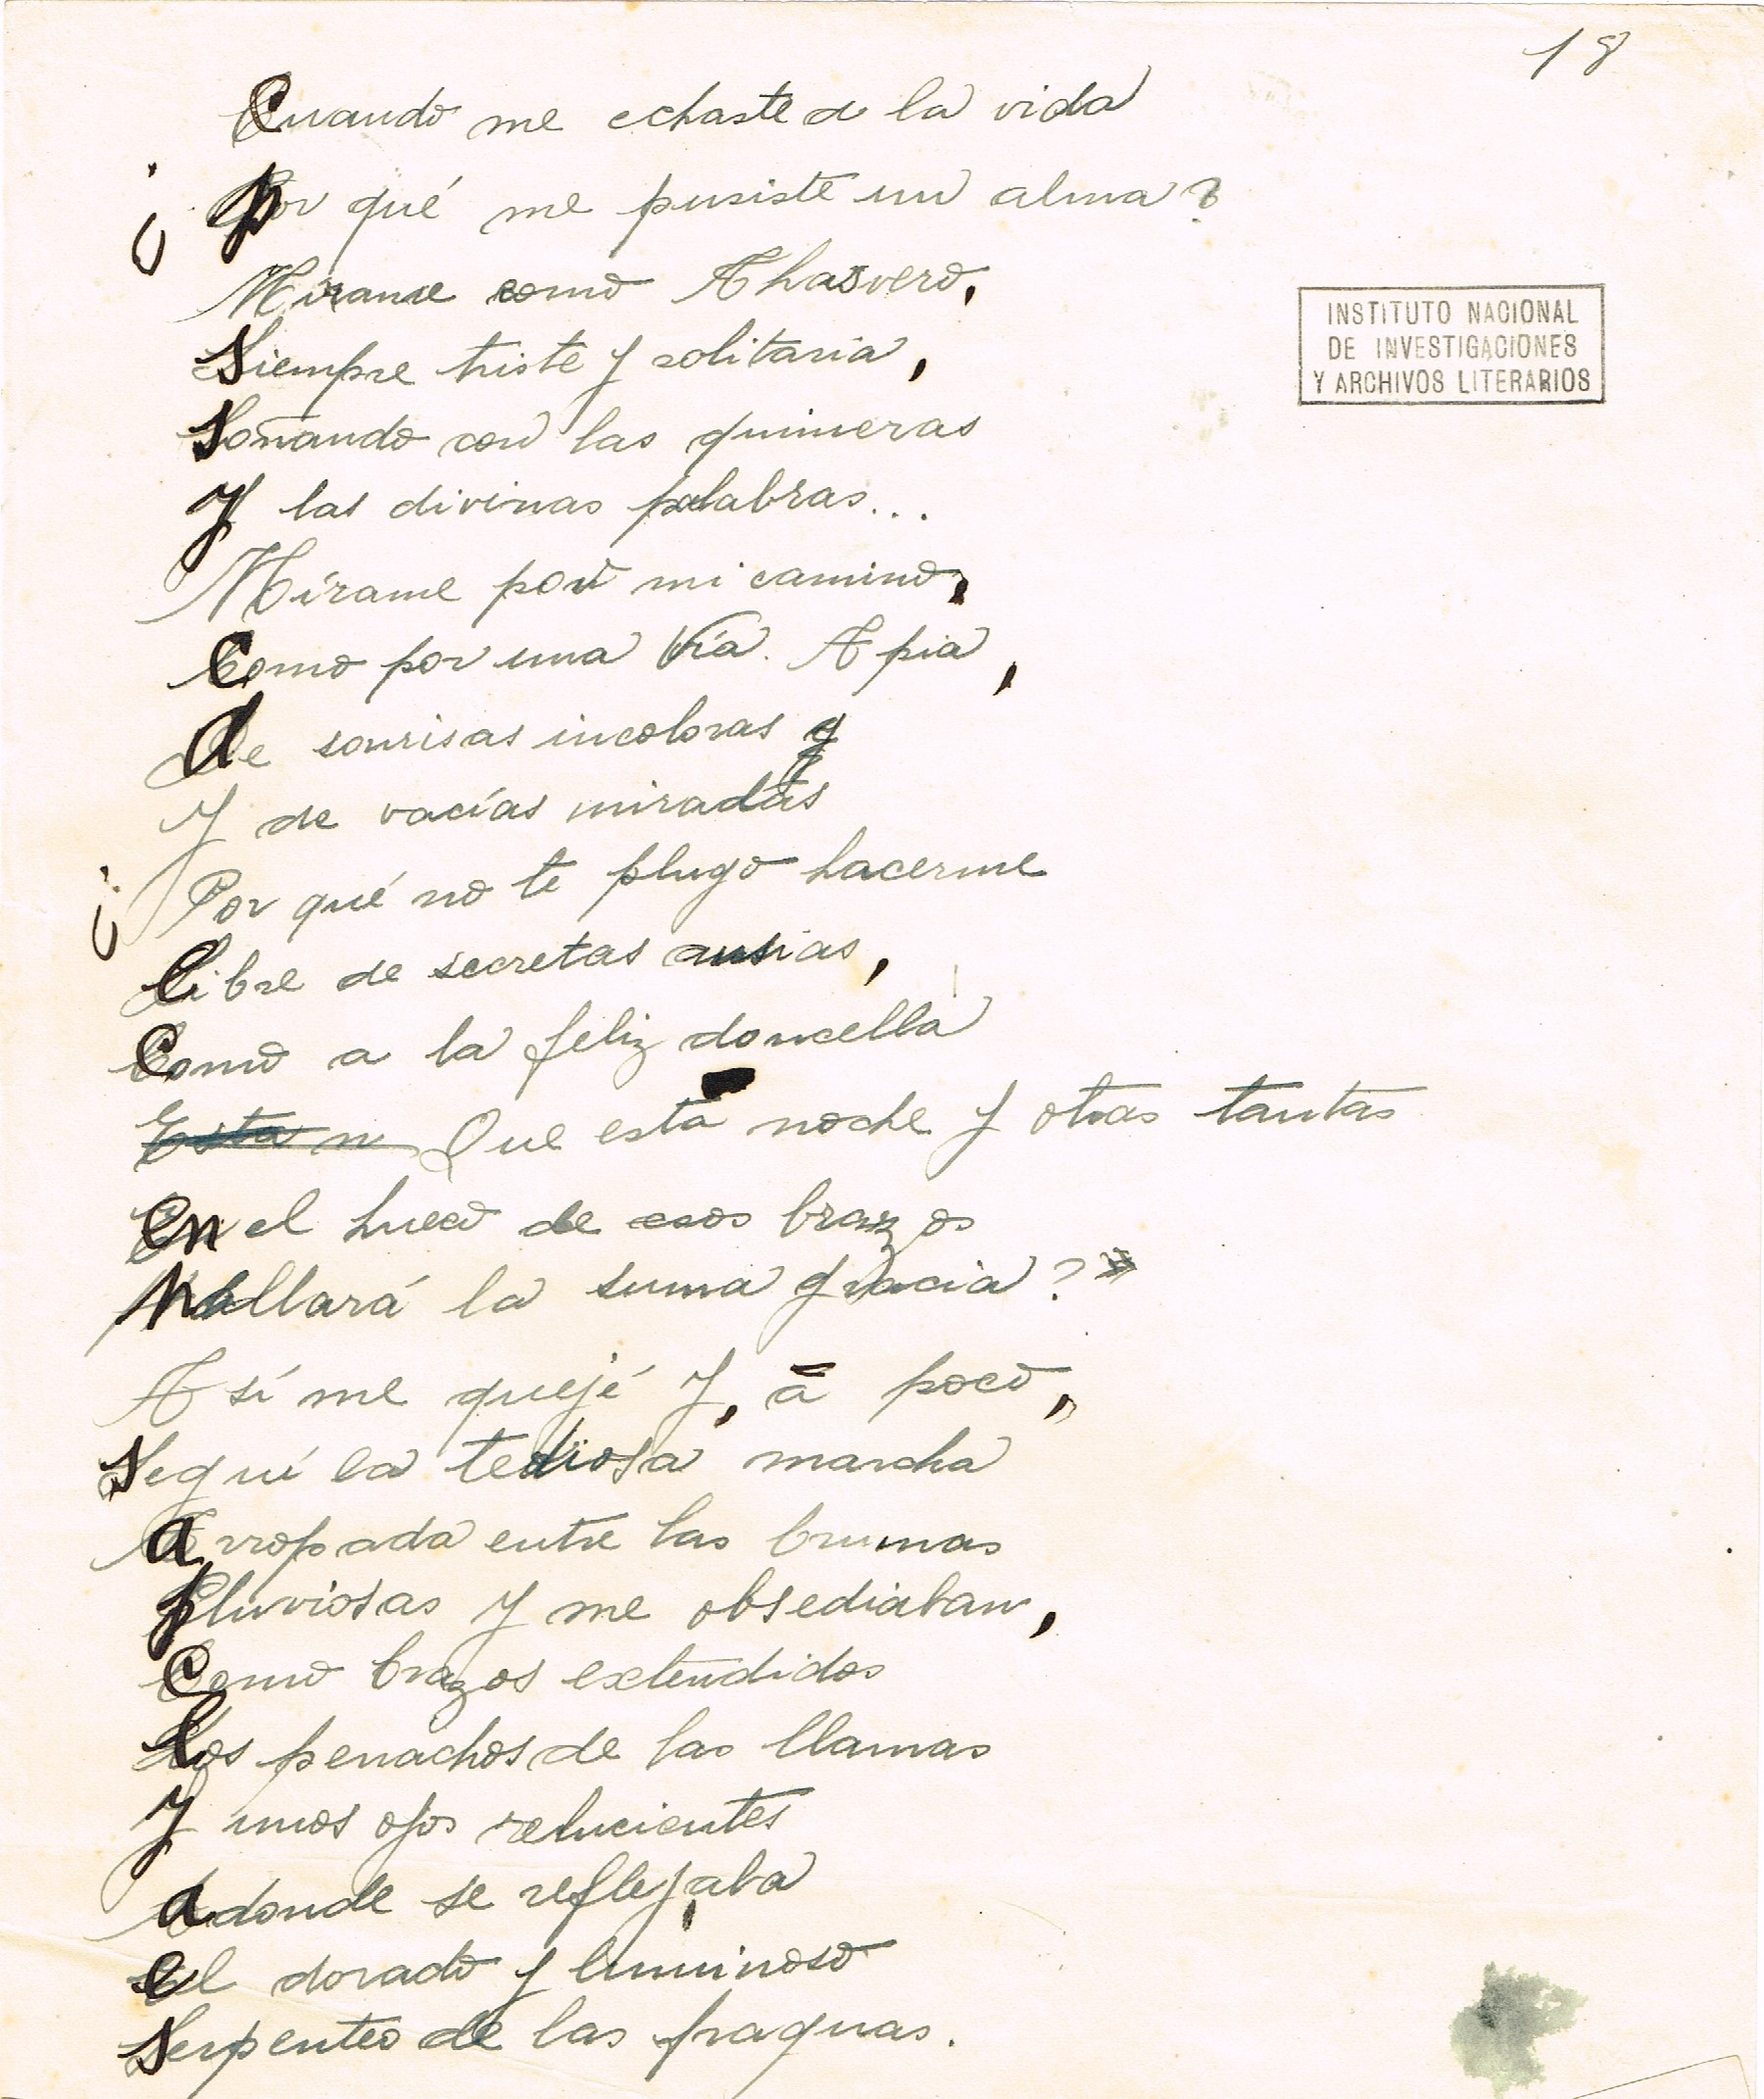 18
cuando me echaste a la vida
¿por qué me pusiste un alma?
Mírame como Ahasvero,
siempre triste y solitaria,
soñando con las quimeras
y las divinas palabras...
Mírame por mi camino,
como por una Vía Apia,
de sonrisas incoloras y
Y de vacías miradas
¿Por qué no te plugo hacerme
libre de secretas ansias,
como a la feliz doncella
Esta n Que esta noche y otras tantas
en el hueco de esos brazos
hallará la suma gracia?»
Así me quejé y, a poco,
seguí la tediosa marcha
arropada entre las brumas
pluviosas y me obsediaban,
como brazos extendidos
los penachos de las llamas
y unos ojos relucientes
adonde se reflejaba
el dorado y luminoso
serpenteo de las fraguas.
INSTITUTO NACIONAL
DE INVESTIGACIONES
Y ARCHIVOS LITERARIOS